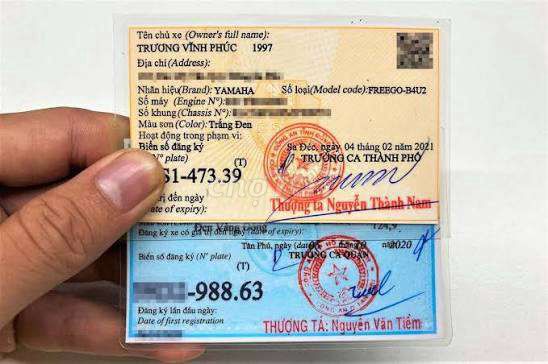 Tên chủ xe (Owner's full name):
TRƯƠNG VĨNH PHÚC 1997
Địa chỉ (Address):
Nhãn hiệu(Brand): YAMAHA Số loại(Model code):FREEGO-B4U2
Số máy (Engine N°):
Số khung(Chassis N°):
Màu sơn (Color): Trắng Đen
Hoạt động trong phạm vi:
Biển số đăng ký Sa Đéc, ngày 04 tháng 02 năm 2021
(N° plate) (T) TRƯỞNG CA THÀNH PHỐ
S1-473.39
trị đến ngày
of expiry): Thượng tá Nguyễn Thành Nam
Đăng ký xe có giá trị đến ngày
Date of expiry):
Tân Phú, ngày 2020
Biển số đăng ký (N° plate) TRƯỞNG CA QUẬN
(T)
-988.63
Đăng ký lần đầu ngày
Date of first registration THƯỢNG TÁ: Nguyễn Văn Tiềm